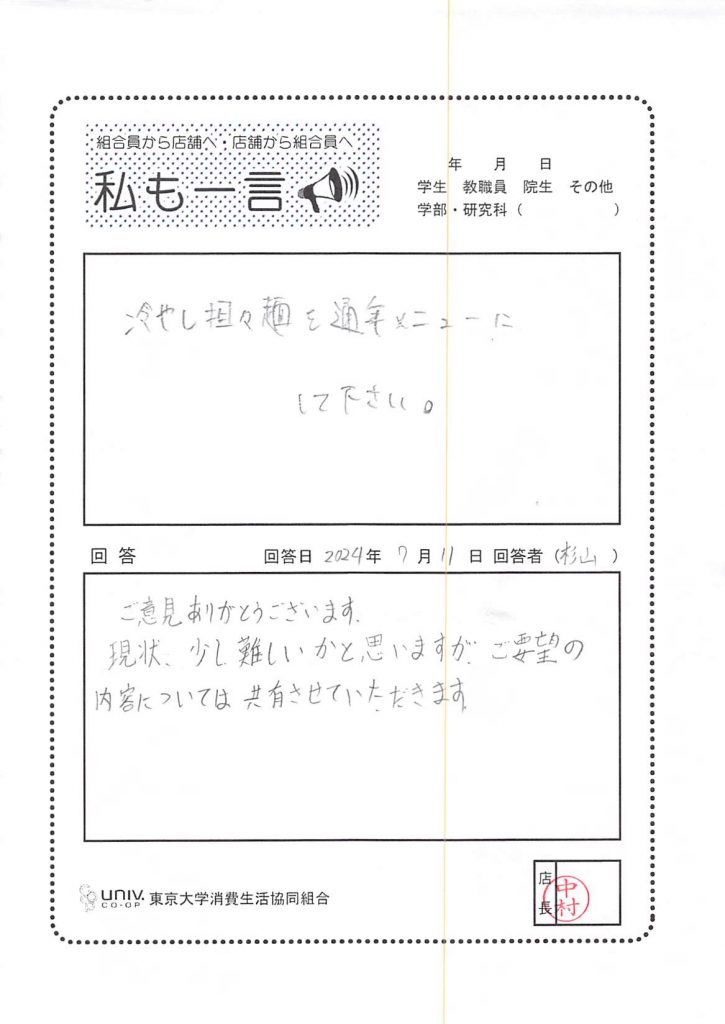 組合員から店舗へ・店舗から組合員へ
私も一言
年 月 日
学生 教職員 院生 その他
学部・研究科（ ）
冷やし担々麺を通年メニューに
して下さい。
回答 回答日 2024年 7月 11日 回答者（杉山）
ご意見ありがとうございます。
現状、少し難しいかと思いますが、ご要望の
内容については共有させていただきます。
UNIV. CO-OP 東京大学消費生活協同組合
店長 中村